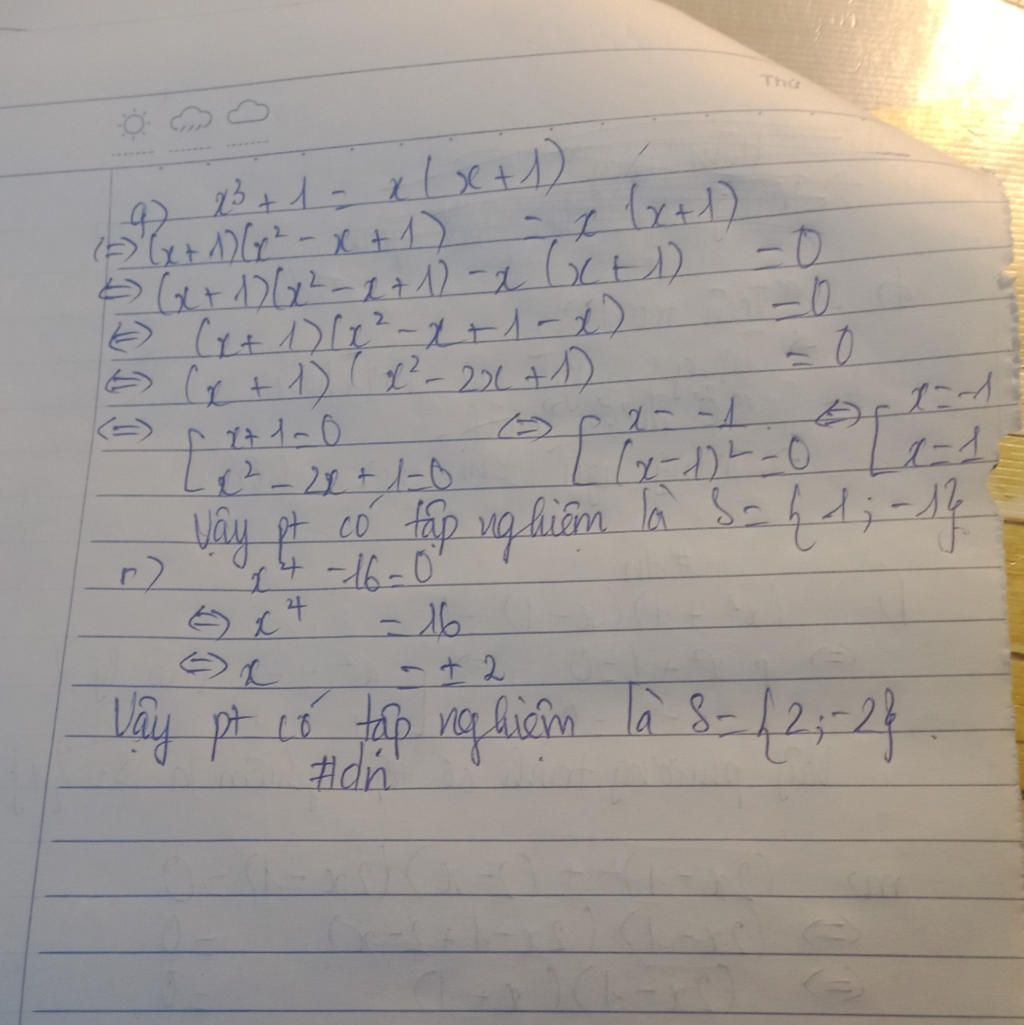 Thứ
q) x³ + 1 = x(x+1)
⇔ (x+1)(x² - x + 1) = x (x+1)
⇔ (x+1)(x² - x + 1) - x (x+1) = 0
⇔ (x+1)(x² - x + 1 - x) = 0
⇔ (x + 1) (x² - 2x + 1) = 0
⇔ [ x+1=0 ⇔ [ x = -1 ⇔ [ x = -1
x² - 2x + 1=0 (x-1)² = 0 x = 1
Vậy pt có tập nghiệm là S = { 1 ; -1}
r) x⁴ - 16 = 0
⇔ x⁴ = 16
⇔ x = ± 2
Vậy pt có tập nghiệm là S = {2; -2}.
#dn